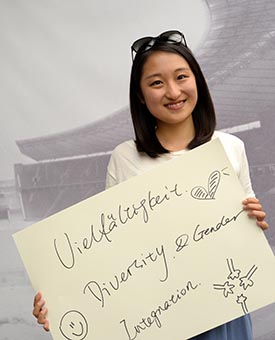 Vielfältigkeit.
Diversity. & Gender
Integration.